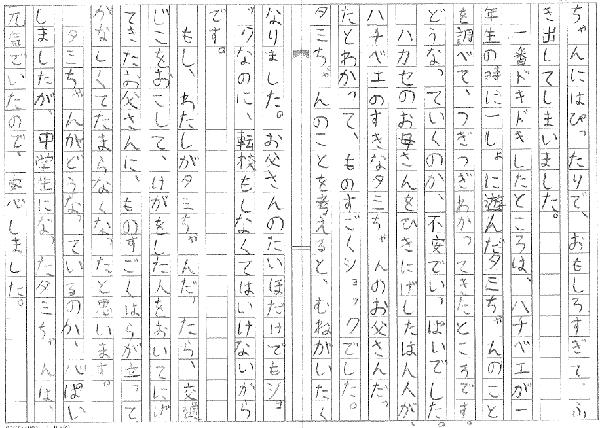 ちゃんにはぴったりで、おもしろすぎて、ふ
き出してしまいました。
一番ドキドキしたところは、ハチベエが一
年生の時に一しょに遊んだタミちゃんのこと
を調べて、つぎつぎわかってきたところです。
どうなっていくのか、不安でいっぱいでした。
ハカセのお母さんをひきにげしたはん人が、
ハチベエのすきなタミちゃんのお父さんだっ
たとわかって、ものすごくショックでした。
タミちゃんのことを考えると、むねがいたく
なりました。お父さんのたいほだけでもショ
ックなのに、転校もしなくてはいけないから
です。
もし、わたしがタミちゃんだったら、交通
じこをおこして、けがをした人をおいてにげ
てきたお父さんに、ものすごくはらが立って、
かなしくてたまらなくなったと思います。
タミちゃんがどうなっているのか、心ぱい
しましたが、中学生になったタミちゃんは、
元気でいたので、安心しました。